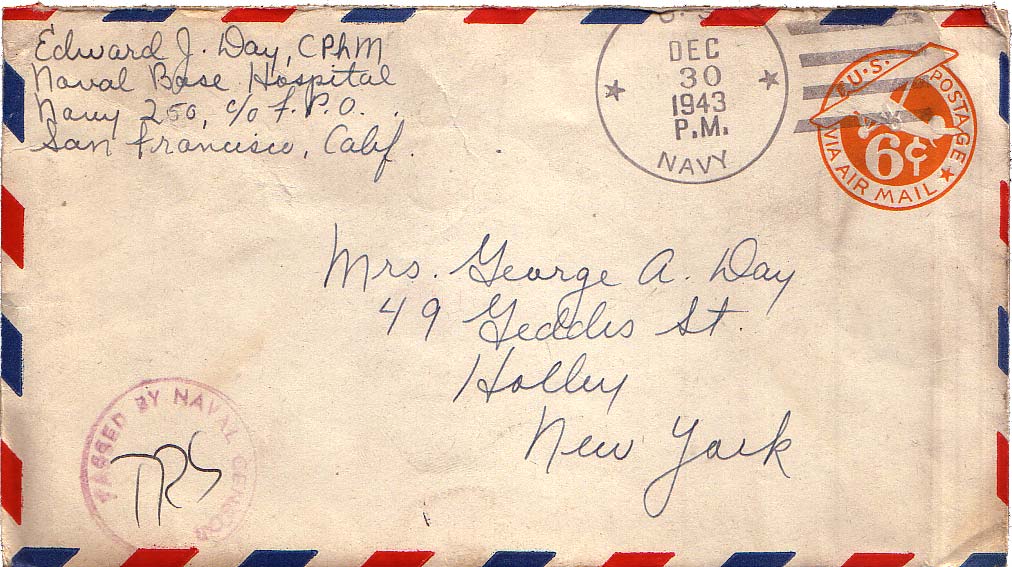 Edward J. Day, CPhM
Naval Base Hospital
Navy 250, c/o F.P.O.
San Francisco, Calif.
U.S.
DEC
30
1943
P.M.
NAVY
U.S. POSTAGE
6¢
VIA AIR MAIL
Mrs. George A. Day
49 Geddis St.
Holley
New York
PASSED BY NAVAL CENSOR
TRS